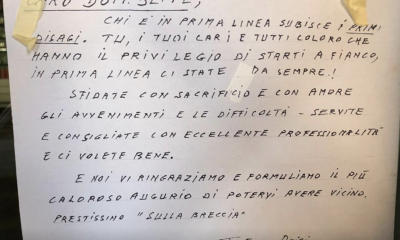 CARO DOTT.
CHI È IN PRIMA LINEA SUBISCE I PRIMI
DISAGI. TU, I TUOI CARI E TUTTI COLORO CHE
HANNO IL PRIVILEGIO DI STARTI A FIANCO,
IN PRIMA LINEA CI STATE DA SEMPRE!
SFIDATE CON SACRIFICIO E CON AMORE
GLI AVVENIMENTI E LE DIFFICOLTÀ - SERVITE
E CONSIGLIATE CON ECCELLENTE PROFESSIONALITÀ
E CI VOLETE BENE.
E NOI VI RINGRAZIAMO E FORMULIAMO IL PIÙ
CALOROSO AUGURIO DI POTERVI AVERE VICINO.
PRESTISSIMO "SULLA BRECCIA"